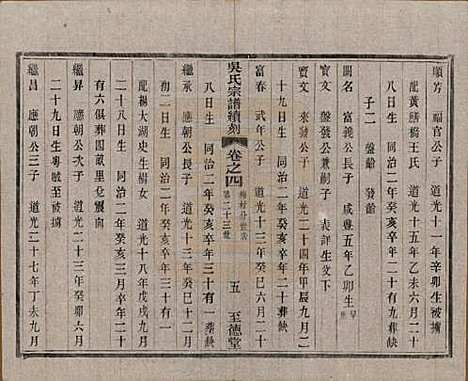 順芳 福官公子 道光十一年辛卯生被擄
配黃膳橋王氏 道光十五年乙未六月二十
八日生 同治二年癸亥卒年二十有九葬缺
子二 盤齡 發齡
開名 富義公長子 咸豐五年乙卯生
寶文 盤發公兼嗣子 表詳生父下
寶文 來發公子 道光二十四年甲辰九月二
十九日生 同治二年癸亥卒年二十葬缺
富春 武年公子 道光十三年癸巳六月二十
八日生 同治二年癸亥卒年三十有一葬缺
吳氏宗譜續刻 卷之四 第二十三世 五 至德堂
繼承 應朝公長子 道光十三年癸巳六月
初一日生 同治二年癸亥卒年三十有一
配楊大湖史生楊女 道光十八年戊戌九月
二十八日生 同治二年癸亥三月卒年二十
有六俱葬圖蔽里兌震向
繼昇 應朝公次子 道光二十三年癸卯六月
二十九日生粵賊至被擄
繼昌 應朝公三子 道光二十七年丁未九月